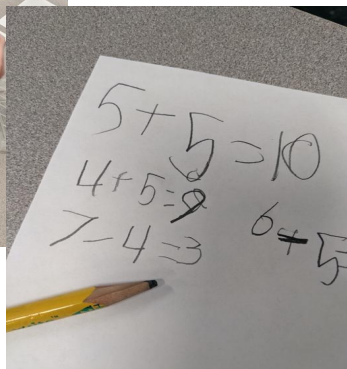 5+5=10
4+5=9
7-4=3
6+5